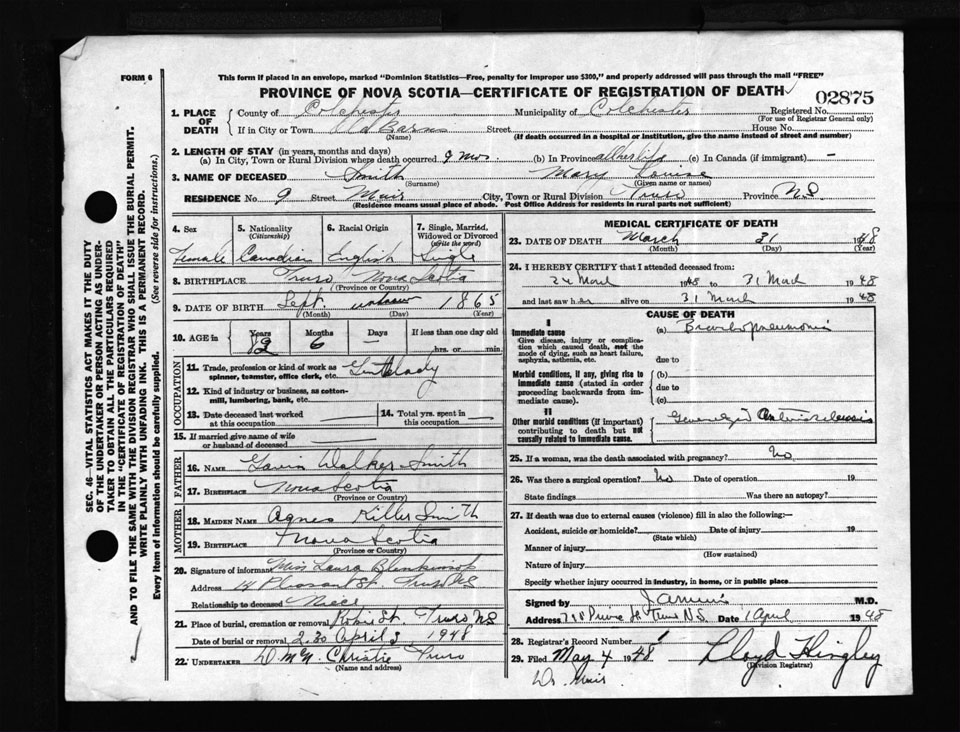 FORM 6
This form if placed in an envelope, marked "Dominion Statistics—Free, penalty for improper use $300," and properly addressed will pass through the mail "FREE"
PROVINCE OF NOVA SCOTIA—CERTIFICATE OF REGISTRATION OF DEATH
02875
1. PLACE OF DEATH { County of Colchester Municipality of Colchester Registered No.
(For use of Registrar General only)
If in City or Town Old Barns Street House No.
(Name) (If death occurred in a hospital or institution, give the name instead of street and number)
2. LENGTH OF STAY (in years, months and days)
(a) In City, Town or Rural Division where death occurred 9 mos. (b) In Province all her life (c) In Canada (if immigrant) —
3. NAME OF DECEASED Smith Mary Louise
(Surname) (Given name or names)
RESIDENCE No. 9 Street Muir City, Town or Rural Division Truro Province N.S.
(Residence means usual place of abode. Post Office Address for residents in rural parts not sufficient)
4. Sex Female
5. Nationality (Citizenship) Canadian
6. Racial Origin English
7. Single, Married, Widowed or Divorced (write the word) Single
8. BIRTHPLACE Truro Nova Scotia
(Province or Country)
9. DATE OF BIRTH Sept. unknown 1865
(Month) (Day) (Year)
10. AGE in Years 82 Months 6 Days — If less than one day old
hrs. or min.
OCCUPATION
11. Trade, profession or kind of work as spinner, teamster, office clerk, etc.
12. Kind of industry or business, as cotton-mill, lumbering, bank, etc.
13. Date deceased last worked at this occupation
14. Total yrs. spent in this occupation
15. If married give name of wife or husband of deceased
FATHER
16. NAME Gavin Walker Smith
17. BIRTHPLACE Nova Scotia
(Province or Country)
MOTHER
18. MAIDEN NAME Agnes Smith
19. BIRTHPLACE Nova Scotia
(Province or Country)
20. Signature of informant Miss Laura Blenkinsop
Address 14 Pleasant St. Truro NS
Relationship to deceased Niece
21. Place of burial, cremation or removal Robie St. Truro NS
Date of burial or removal 2.30 April 3 1948
22. UNDERTAKER Christie Truro
(Name and address)
MEDICAL CERTIFICATE OF DEATH
23. DATE OF DEATH March 31 1948
(Month) (Day) (Year)
24. I HEREBY CERTIFY that I attended deceased from:
24 March 1948 to 31 March 1948
and last saw her alive on 31 March 1948
CAUSE OF DEATH
I
Immediate cause (a) Bronchopneumonia
Give disease, injury or complication which caused death, not the mode of dying, such as heart failure, asphyxia, asthenia, etc.
due to
Morbid conditions, if any, giving rise to immediate cause (stated in order proceeding backwards from immediate cause).
(b)
due to
(c)
II
Other morbid conditions (if important) contributing to death but not causally related to immediate cause.
Generalized Arteriosclerosis
25. If a woman, was the death associated with pregnancy? No
26. Was there a surgical operation? No Date of operation 19
State findings Was there an autopsy?
27. If death was due to external causes (violence) fill in also the following:—
Accident, suicide or homicide? Date of injury 19
(State which)
Manner of injury
(How sustained)
Nature of injury
Specify whether injury occurred in industry, in home, or in public place
Signed by M.D.
Address Prince St Truro N.S. Date 1 April 1948
28. Registrar's Record Number 1
29. Filed May 4 1948 Lloyd Hingley
(Division Registrar)
Dr. Muir
SEC. 46—VITAL STATISTICS ACT MAKES IT THE DUTY
OF THE UNDERTAKER OR PERSON ACTING AS UNDER-
TAKER TO OBTAIN ALL THE PARTICULARS REQUIRED
IN THE "CERTIFICATE OF REGISTRATION OF DEATH"
AND TO FILE THE SAME WITH THE DIVISION REGISTRAR WHO SHALL ISSUE THE BURIAL PERMIT.
WRITE PLAINLY WITH UNFADING INK. THIS IS A PERMANENT RECORD.
Every item of information should be carefully supplied. (See reverse side for instructions.)